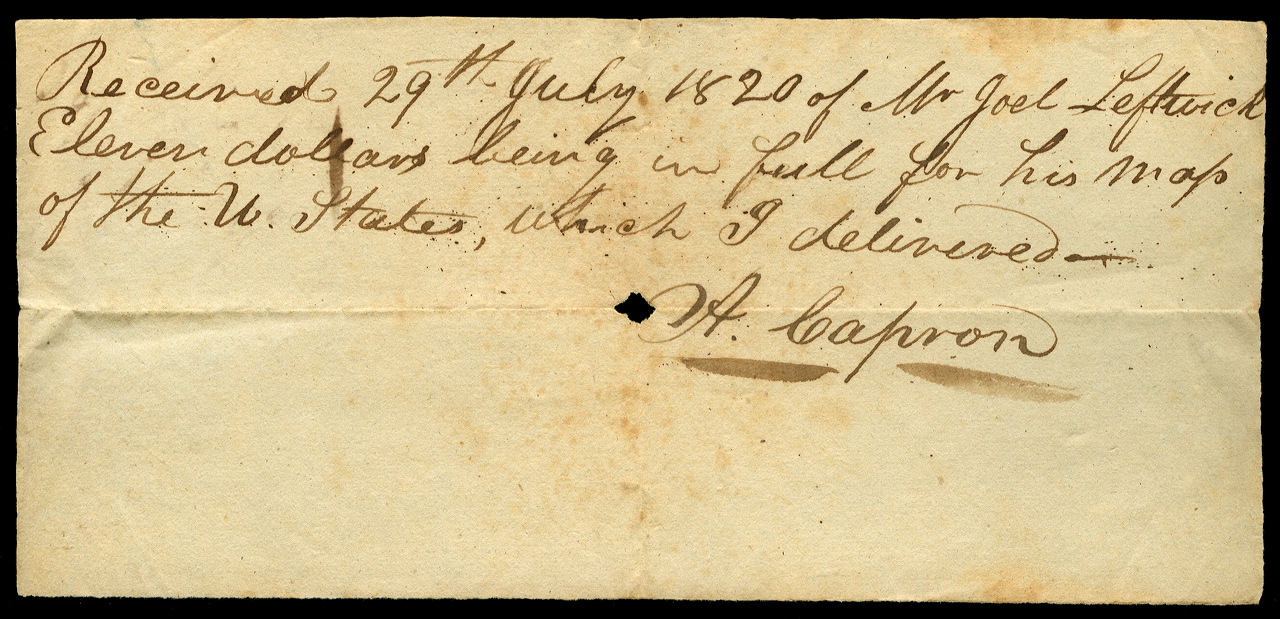 Received 29th July 1820 of Mr Joel Leftwick
Eleven dollars being in full for his map
of the U. States, which I delivered—
A. Capron